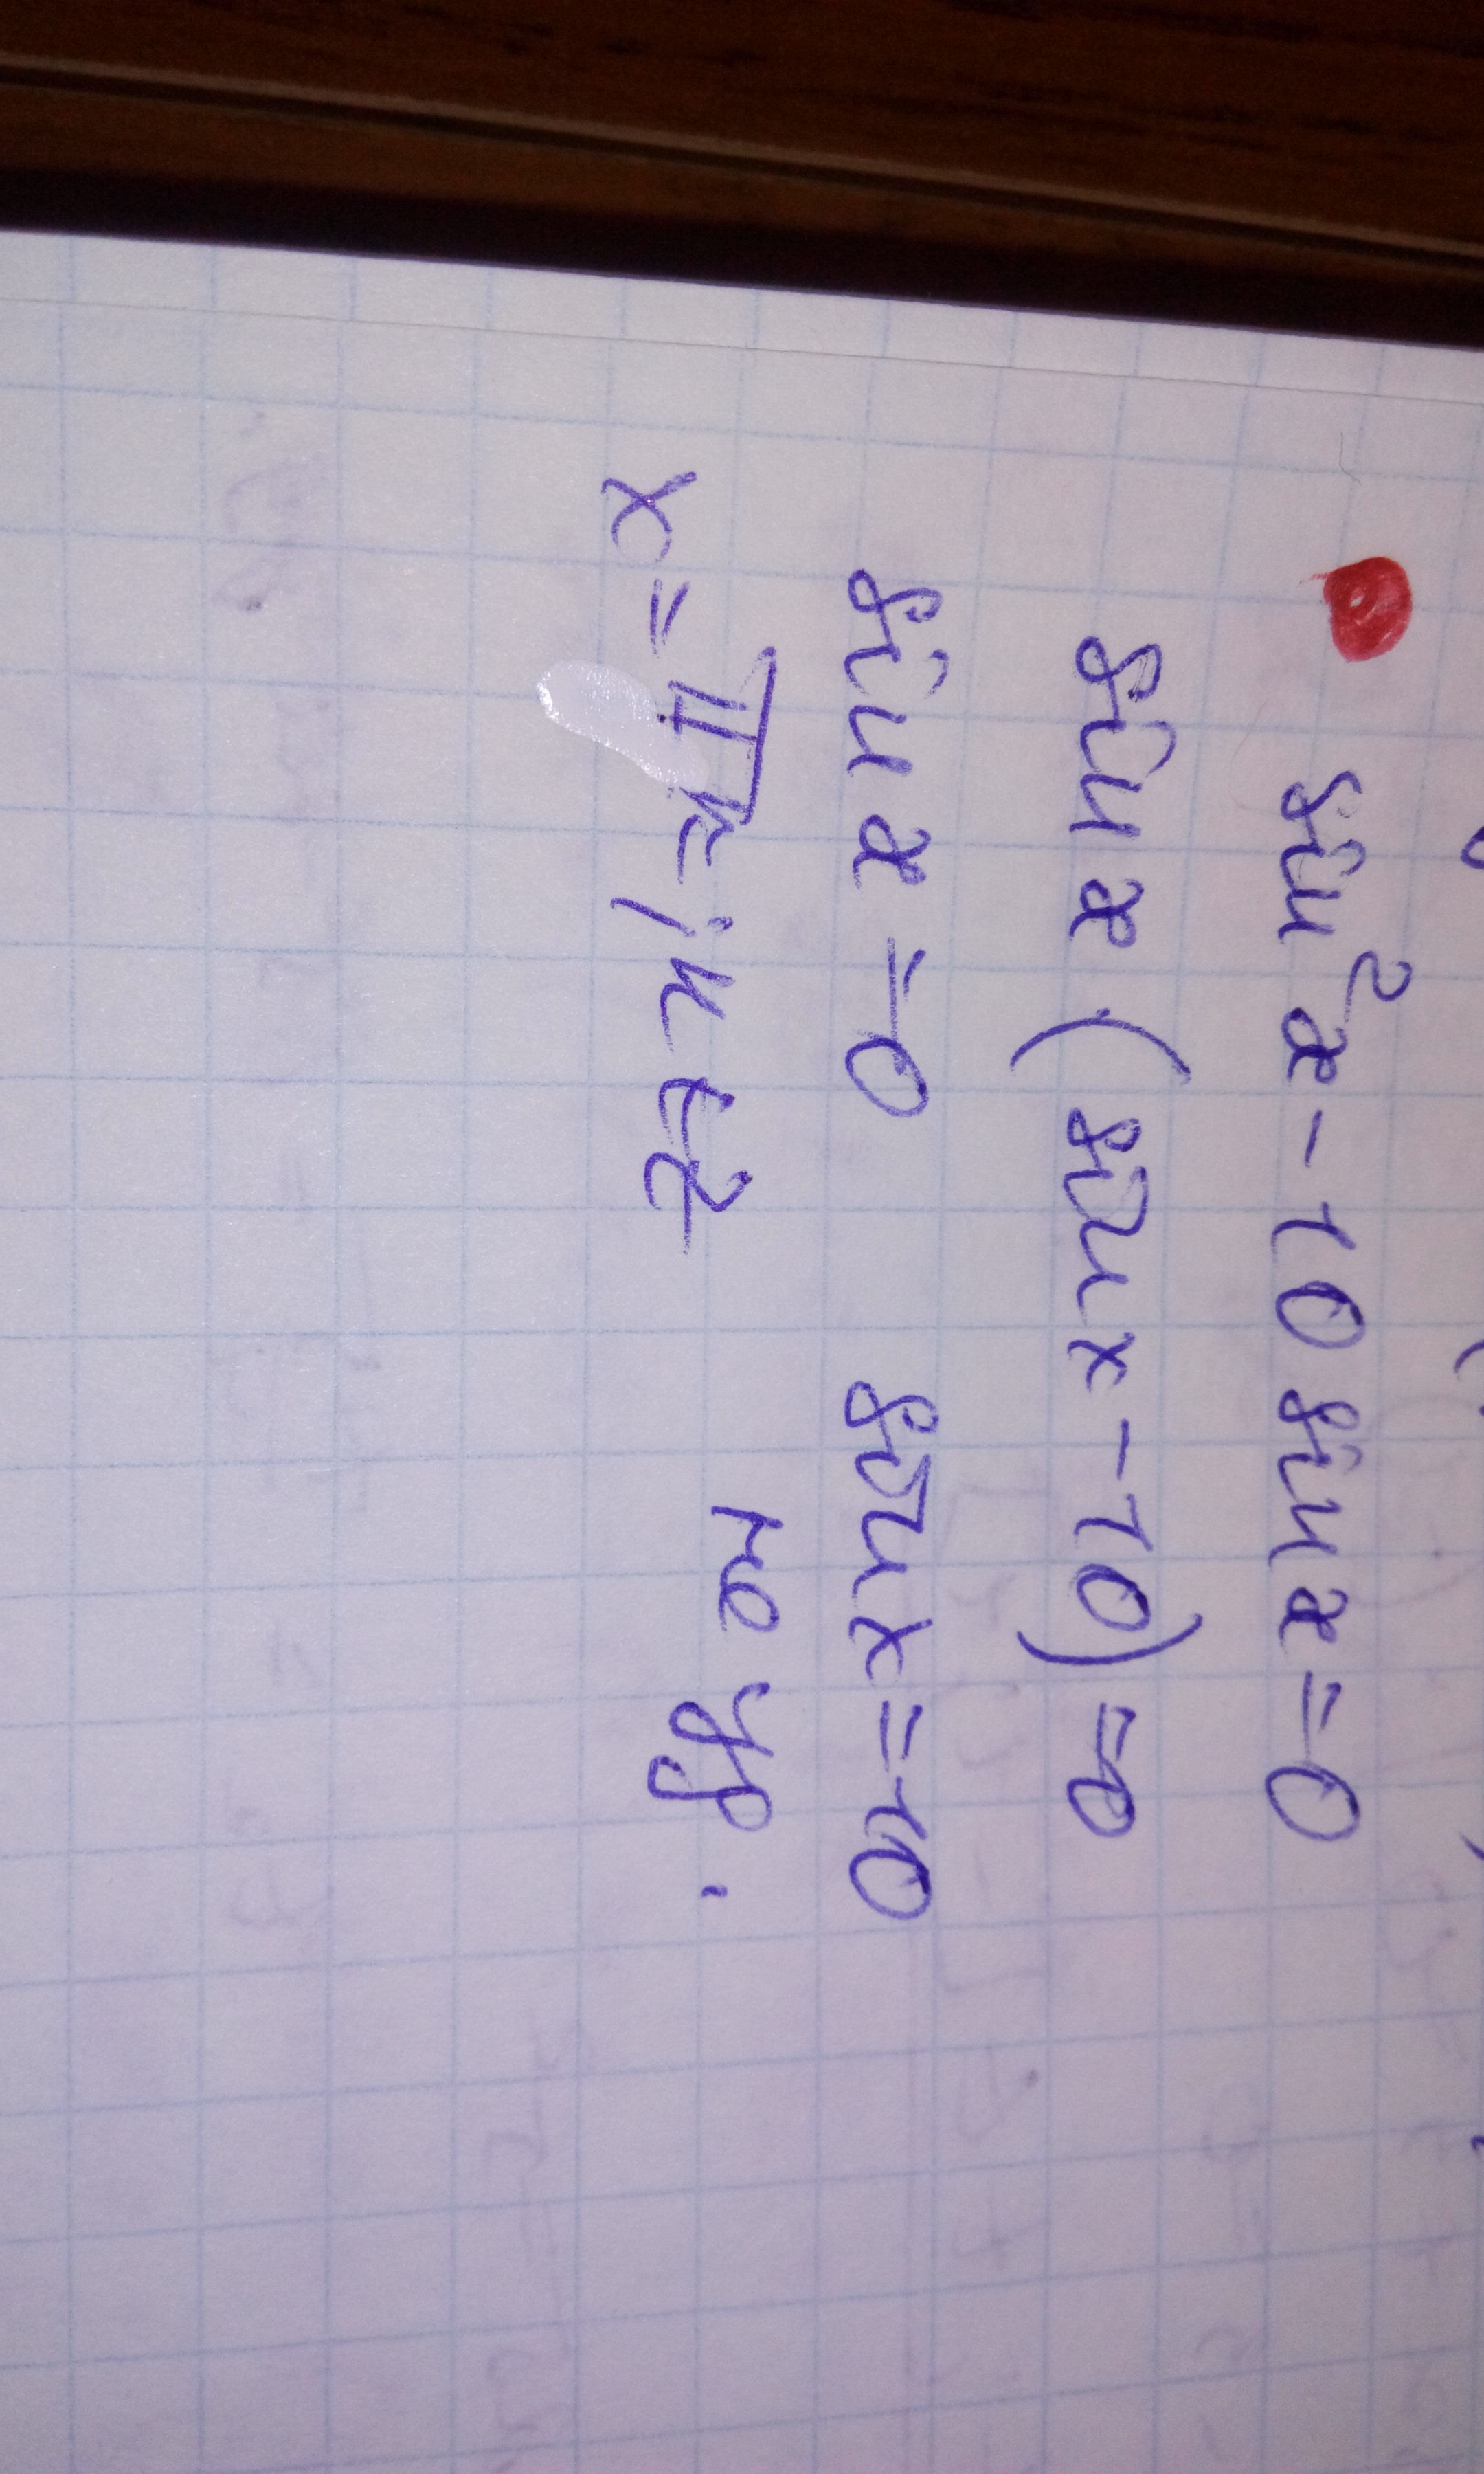 sin²x - 10 sin x = 0
sin x (sin x - 10) = 0
sin x = 0 sin x = 10
x = πn; n ∈ Z не уд.